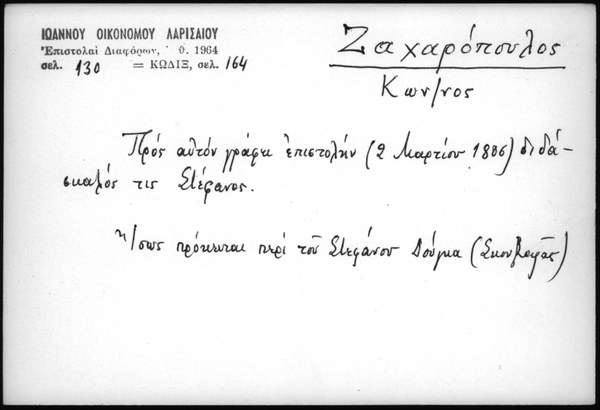 ΙΩΑΝΝΟΥ ΟΙΚΟΝΟΜΟΥ ΛΑΡΙΣΑΙΟΥ
Ἐπιστολαὶ Διαφόρων, θ. 1964
σελ. 130 = ΚΩΔΙΞ, σελ. 164
Ζαχαρόπουλος
Κων/νος
Πρός αὐτόν γράφει ἐπιστολήν (2 Μαρτίου 1806) διδά-
σκαλός τις Στέφανος.
Ἴσως πρόκειται περί τοῦ Στεφάνου Δούγκα